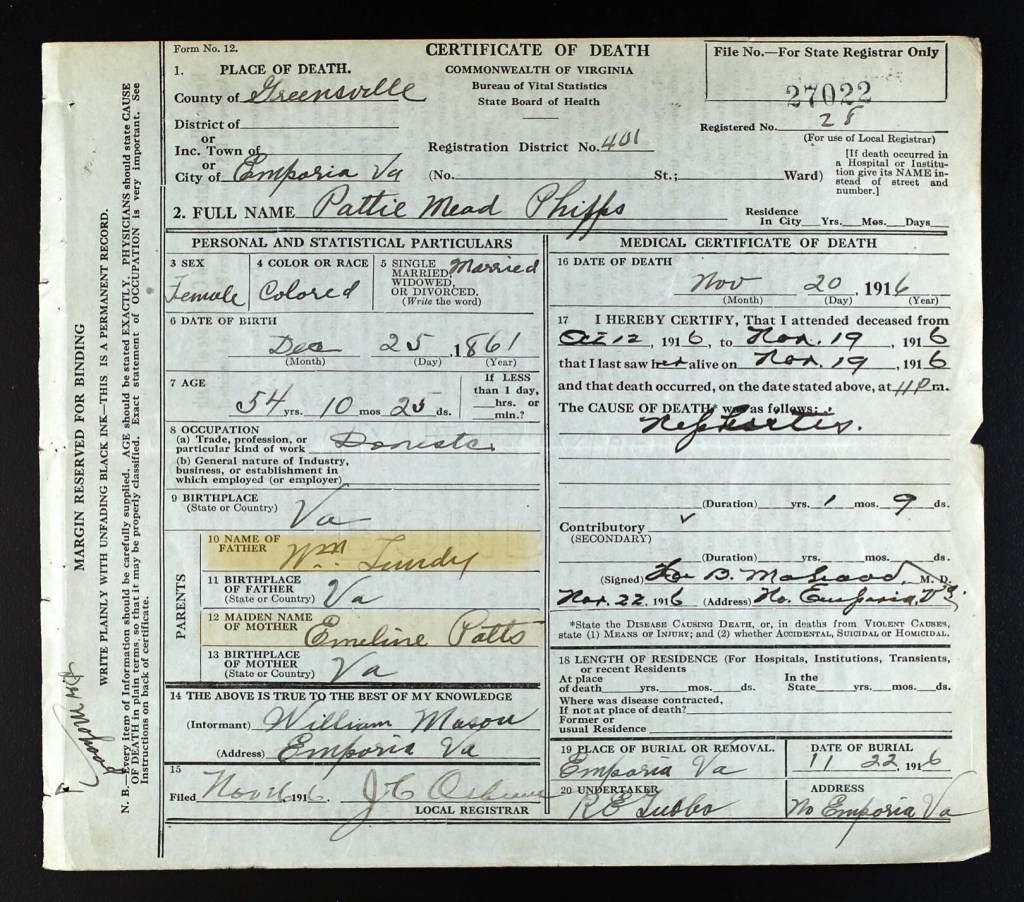 Form No. 12.
CERTIFICATE OF DEATH
COMMONWEALTH OF VIRGINIA
Bureau of Vital Statistics
State Board of Health
File No.—For State Registrar Only
27022
Registered No. 28
(For use of Local Registrar)
[If death occurred in
a Hospital or Institu-
tion give its NAME in-
stead of street and
number.]
1. PLACE OF DEATH.
County of Greensville
District of
or
Inc. Town of
or
City of Emporia Va
Registration District No. 401
(No. St.; Ward)
2. FULL NAME Pattie Mead Phipps
Residence
In City Yrs. Mos. Days
PERSONAL AND STATISTICAL PARTICULARS
3 SEX
Female
4 COLOR OR RACE
Colored
5 SINGLE
MARRIED,
WIDOWED,
OR DIVORCED.
(Write the word)
Married
6 DATE OF BIRTH
Dec 25, 1861
(Month) (Day) (Year)
7 AGE
54 yrs. 10 mos 25 ds.
If LESS
than 1 day,
hrs. or
min.?
8 OCCUPATION
(a) Trade, profession, or
particular kind of work
(b) General nature of Industry,
business, or establishment in
which employed (or employer)
9 BIRTHPLACE
(State or Country) Va
PARENTS
10 NAME OF
FATHER Wm. Lundy
11 BIRTHPLACE
OF FATHER
(State or Country) Va
12 MAIDEN NAME
OF MOTHER Emeline Potts
13 BIRTHPLACE
OF MOTHER
(State or Country) Va
14 THE ABOVE IS TRUE TO THE BEST OF MY KNOWLEDGE
(Informant) William Mason
(Address) Emporia Va
15
Filed Nov 1916 J C
LOCAL REGISTRAR
MEDICAL CERTIFICATE OF DEATH
16 DATE OF DEATH
Nov 20, 1916
(Month) (Day) (Year)
17 I HEREBY CERTIFY, That I attended deceased from
Oct 12, 1916, to Nov. 19, 1916
that I last saw her alive on Nov. 19, 1916
and that death occurred, on the date stated above, at 11 P m.
The CAUSE OF DEATH* was as follows:
Nephritis.
(Duration) yrs. 1 mos. 9 ds.
Contributory
(SECONDARY)
(Duration) yrs. mos. ds.
(Signed) B. M. D.
Nov. 22, 1916 (Address) No. Emporia, Va.
*State the DISEASE CAUSING DEATH, or, in deaths from VIOLENT CAUSES,
state (1) MEANS OF INJURY; and (2) whether ACCIDENTAL, SUICIDAL or HOMICIDAL.
18 LENGTH OF RESIDENCE (For Hospitals, Institutions, Transients,
or recent Residents
At place
of death yrs. mos. ds.
In the
State yrs. mos. ds.
Where was disease contracted,
If not at place of death?
Former or
usual Residence
19 PLACE OF BURIAL OR REMOVAL.
Emporia Va
DATE OF BURIAL
11 22, 1916
20 UNDERTAKER
R E
ADDRESS
No Emporia Va
MARGIN RESERVED FOR BINDING
WRITE PLAINLY WITH UNFADING BLACK INK—THIS IS A PERMANENT RECORD.
N. B.—Every item of Information should be carefully supplied. AGE should be stated EXACTLY. PHYSICIANS should state CAUSE
OF DEATH in plain terms, so that it may be properly classified. Exact statement of OCCUPATION is very important. See
Instructions on back of certificate.